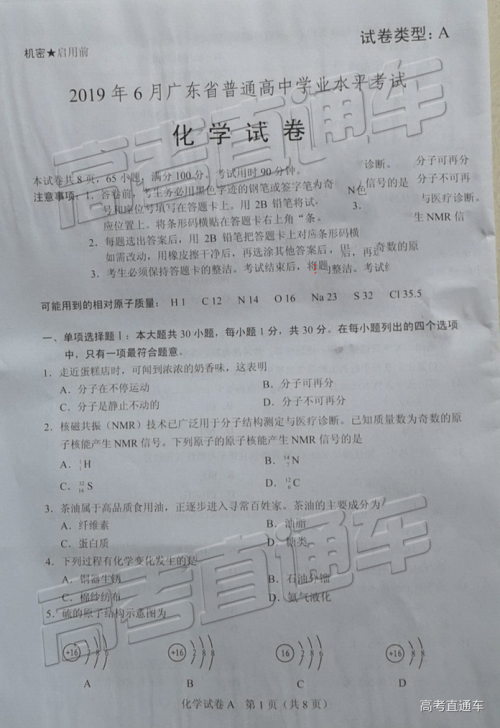 试卷类型: A
机密★启用前
2019 年 6 月广东省普通高中学业水平考试
化 学 试 卷
本试卷共 8 页, 65 小题, 满分 100 分。考试用时 90 分钟。
注意事项: 1. 答卷前, 考生务必用黑色字迹的钢笔或签字笔
号和座位号填写在答题卡上。用 2B 铅笔将试
应位置上。将条形码横贴在答题卡右上角“条
2. 每题选出答案后, 用 2B 铅笔把答题卡上对应
如需改动, 用橡皮擦干净后, 再选涂其他答案
3. 考生必须保持答题卡的整洁。考试结束后, 将
诊断。 分子可再分
信号的是 分子不可再
与医疗诊断。
生 NMR 信
奇数的原
可能用到的相对原子质量: H 1 C 12 N 14 O 16 Na 23 S 32 Cl 35.5
一、单项选择题 I: 本大题共 30 小题, 每小题 1 分, 共 30 分。在每小题列出的四个选项
中, 只有一项最符合题意。
1. 走近蛋糕店时, 可闻到浓浓的奶香味, 这表明
A. 分子在不停运动 B. 分子可再分
C. 分子是静止不动的 D. 分子不可再分
2. 核磁共振 (NMR) 技术已广泛用于分子结构测定与医疗诊断。已知质量数为奇数的原
子核能产生 NMR 信号。下列原子的原子核能产生 NMR 信号的是
A. ¹₁H B. ¹⁴₇N
C. ³²₁₆S D. ¹²₆C
3. 茶油属于高品质食用油, 正逐步进入寻常百姓家。茶油的主要成分为
A. 纤维素 B. 油脂
C. 蛋白质 D. 糖类
4. 下列过程有化学变化发生的是
A. 铜器生锈 B. 石油分馏
C. 棉纱纺布 D. 氨气液化
5. 硫的原子结构示意图为
+16 +16 +16 +16
A B C D
化学试卷 A 第 1 页 (共 8 页)
高考直通车
高考直通车
高考直通车